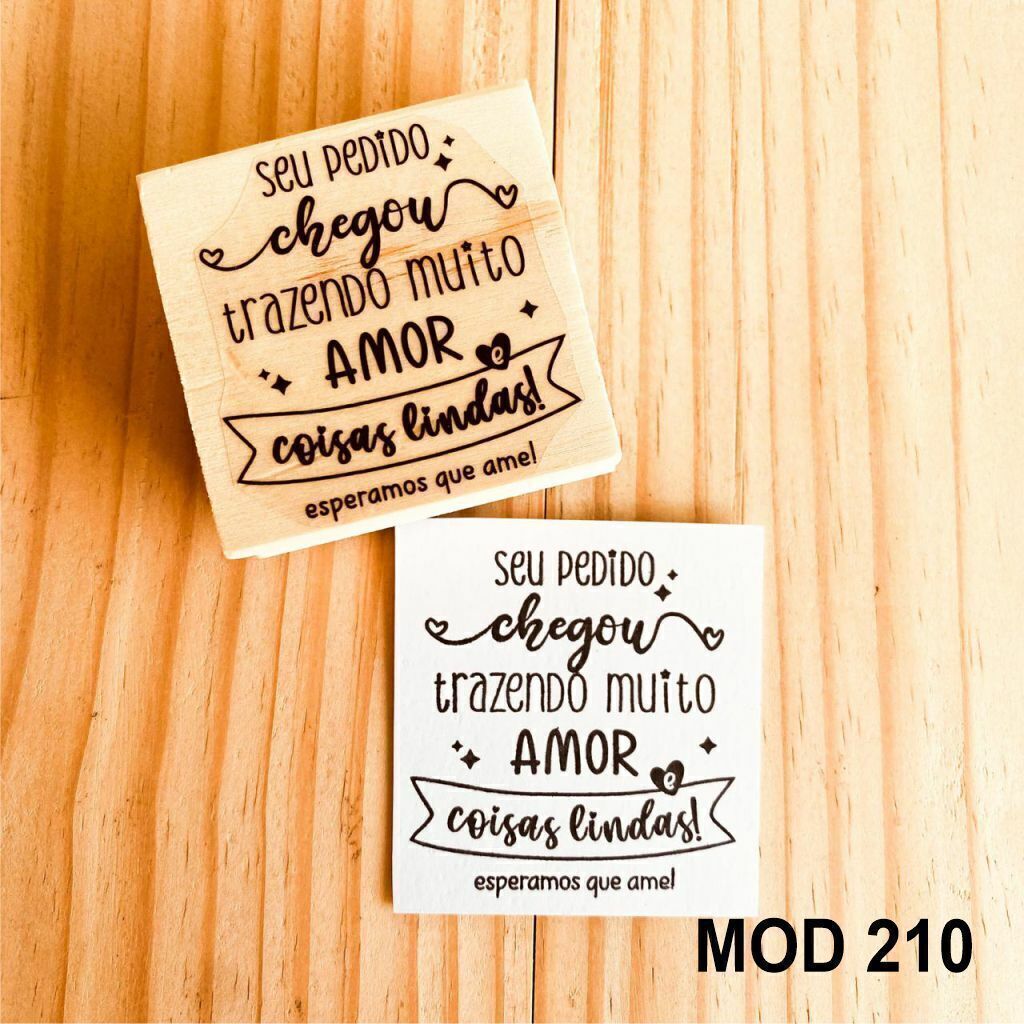 seu pedido
chegou
trazendo muito
AMOR
e
coisas lindas!
esperamos que ame!
seu pedido
chegou
trazendo muito
AMOR
e
coisas lindas!
esperamos que ame!
MOD 210